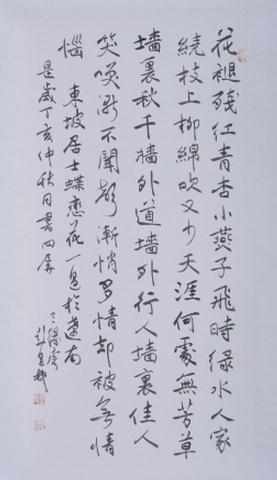 花褪残红青杏小燕子飛時緑水人家
繞枝上柳綿吹又少天涯何處無芳草
墙裏秋千墙外道墙外行人墙裏佳人
笑笑漸不聞聲漸悄多情却被無情
惱 東坡居士蝶恋花一首於蓬南
是歲丁亥仲秋月書四屏